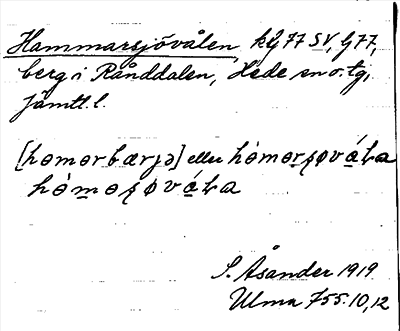 Hammarsjövålen, kbl 77 SV, G 77,
berg i Rånddalen, Hede sn o. tg,
Jämtl. l.
[hɵmɵrbærjə] eller hómɵrʂøvála
hómɵʂøvála
S. Åsander 1919
Ulma 755:10,12